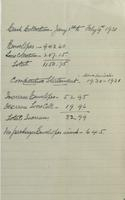 Cash Collection - Jany 1st to Feby 9th 1921
Envelopes - 943.60
Loose Collection - 207.15
Total 1150.75
Comparative Statement
1920-1921
Increase Envelopes 52.95
Increase Loose Coll - 19.94
Total Increase
No. Envelopes used - 645